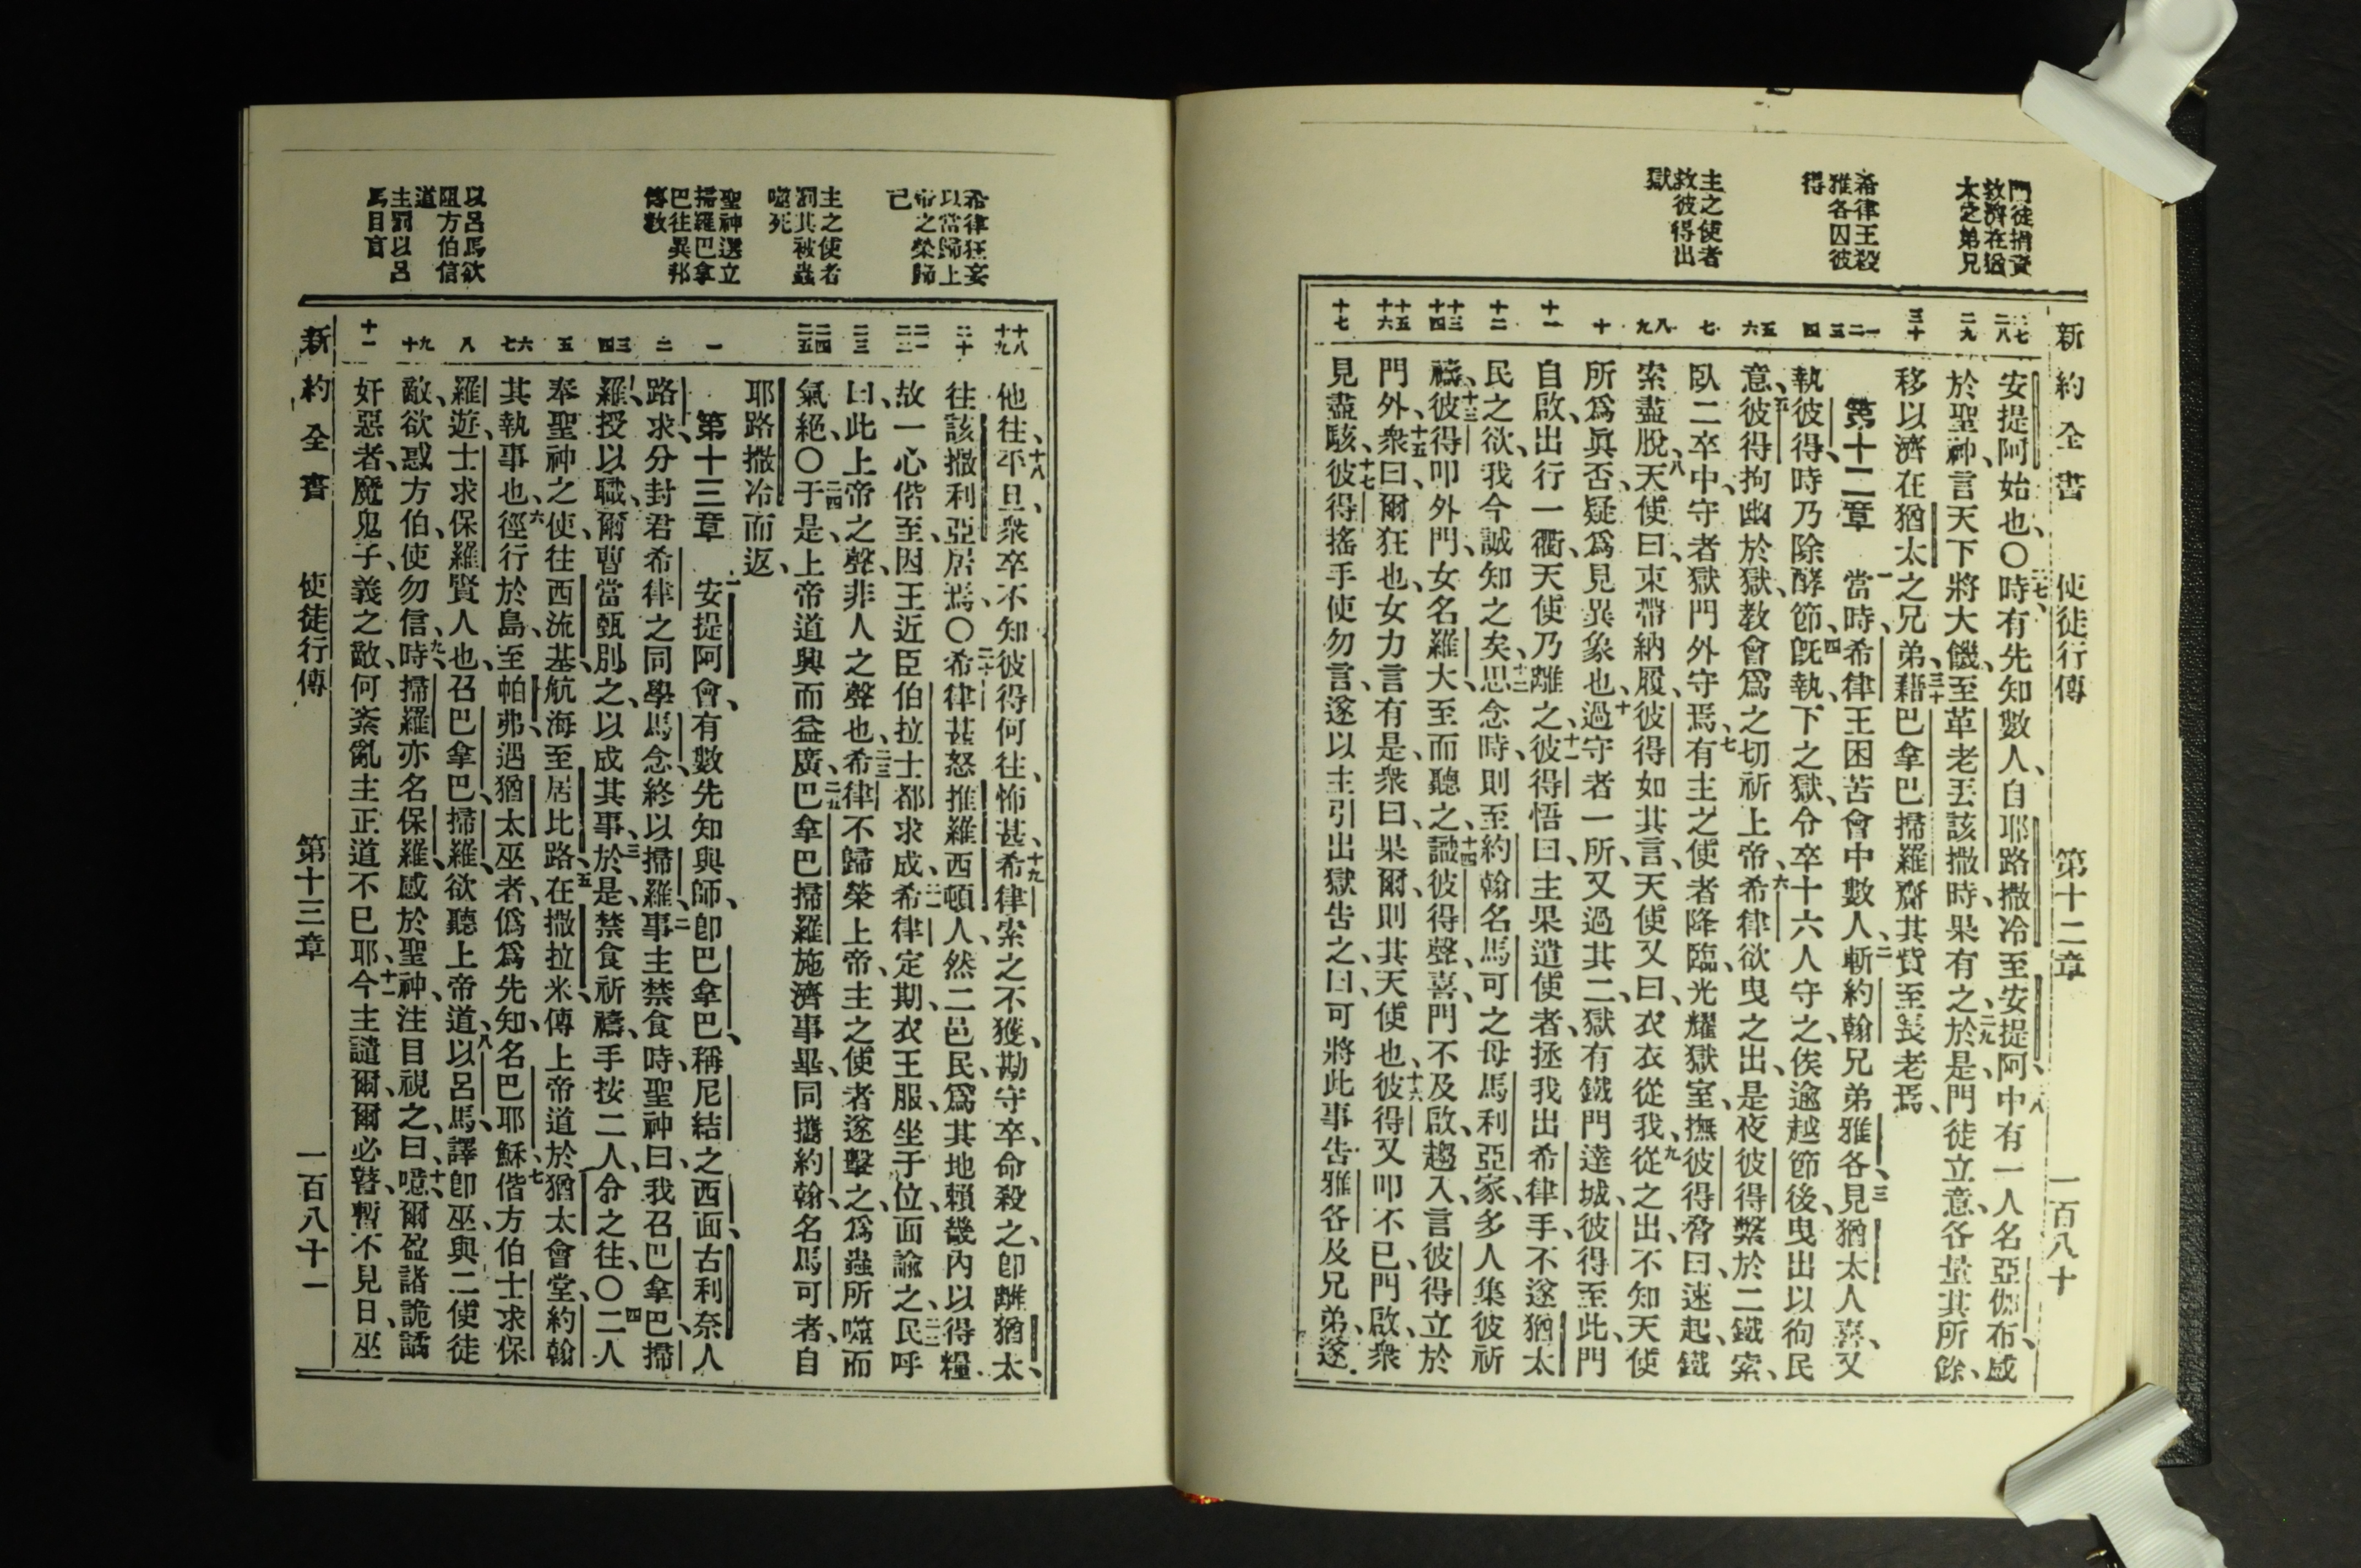 新約全書 使徒行傳 第十二章 一百八十
門徒捐資
救濟在猶
太之弟兄
希律王殺
雅各囚彼
得
主之使者
救彼得出
獄
二七 二八
二九
三十
一 二 三
四
五 六
七
八 九
十
十一
十二
十三 十四
十五 十六
十七
安提阿始也、〇二七時有先知數人、自耶路撒冷至安提阿、二八中有一人名亞伽布、感
於聖神、言天下將大饑、至革老丟該撒時、果有之、二九於是門徒立意、各量其所餘、
移以濟在猶太之兄弟、三十藉巴拿巴掃羅齎其貲至長老焉、
第十二章 一當時、希律王困苦會中數人、二斬約翰兄弟雅各、三見猶太人喜、又
執彼得、時乃除酵節、四旣執、下之獄、令卒十六人守之、俟逾越節後、曳出以徇民
意、五彼得拘幽於獄、教會爲之切祈上帝、六希律欲曳之出、是夜彼得繫於二鐵索、
臥二卒中、守者獄門外守焉、七有主之使者降臨、光耀獄室、撫彼得脅曰、速起、鐵
索盡脫、八天使曰、束帶納履、彼得如其言、天使又曰、衣衣從我、九從之出、不知天使
所爲眞否、疑爲見異象也、十過守者一所、又過其二、獄有鐵門達城、彼得至此、門
自啟、出行一衢、天使乃離之、十一彼得悟曰、主果遣使者、拯我出希律手、不遂猶太
民之欲、我今誠知之矣、十二思念時、則至約翰名馬可之母馬利亞家、多人集彼祈
禱、十三彼得叩外門、女名羅大、至而聽之、十四識彼得聲、喜、門不及啟、趨入、言彼得立於
門外、十五衆曰、爾狂也、女力言有是、衆曰、果爾、則其天使也、十六彼得又叩不已、門啟、衆
見盡駭、十七彼得搖手使勿言、遂以主引出獄告之、曰、可將此事告雅各及兄弟、遂
希律狂妄
以當歸上
帝之榮歸
己
主之使者
罰其被蟲
噬死
聖神選立
掃羅巴拿
巴往異邦
傳教
以呂馬欲
阻方伯信
道
主罰以呂
馬目盲
十八 十九
二十
二一 二二
二三
二四 二五
一
二
三 四
五
六 七
八
九 十
十一
他往、十八平旦、衆卒不知彼得何往、怖甚、十九希律索之不獲、勘守卒、命殺之、卽離猶太、
往該撒利亞居焉、〇二十希律甚怒推羅西頓人、然二邑民、爲其地賴畿內以得糧、
故一心偕至、因王近臣伯拉士都求成、二一希律定期、衣王服、坐于位、面諭之、二二民呼
曰、此上帝之聲、非人之聲也、二三希律不歸榮上帝、主之使者遂擊之、爲蟲所噬而
氣絕、〇二四于是、上帝道興而益廣、二五巴拿巴掃羅施濟事畢、同攜約翰、名馬可者、自
耶路撒冷而返、
第十三章 一安提阿會、有數先知與師、卽巴拿巴、稱尼結之西面、古利奈人
路求、分封君希律之同學馬念、終以掃羅、二事主禁食時、聖神曰、我召巴拿巴、掃
羅、授以職、爾曹當甄別之、以成其事、三於是禁食祈禱、手按二人、令之往、〇四二人
奉聖神之使、往西流基、航海至居比路、五在撒拉米、傳上帝道於猶太會堂、約翰
其執事也、六徑行於島、至帕弗、遇猶太巫者、僞爲先知、名巴耶穌、七偕方伯士求保
羅遊、士求保羅賢人也、召巴拿巴、掃羅、欲聽上帝道、八以呂馬、譯卽巫、與二使徒
敵、欲惑方伯、使勿信、九時掃羅亦名保羅、感於聖神、注目視之、曰、十噫、爾盈諸詭譎
奸惡者、魔鬼子、義之敵、何紊亂主正道不已耶、十一今主譴爾、爾必瞽、暫不見日、巫
新約全書 使徒行傳 第十三章 一百八十一